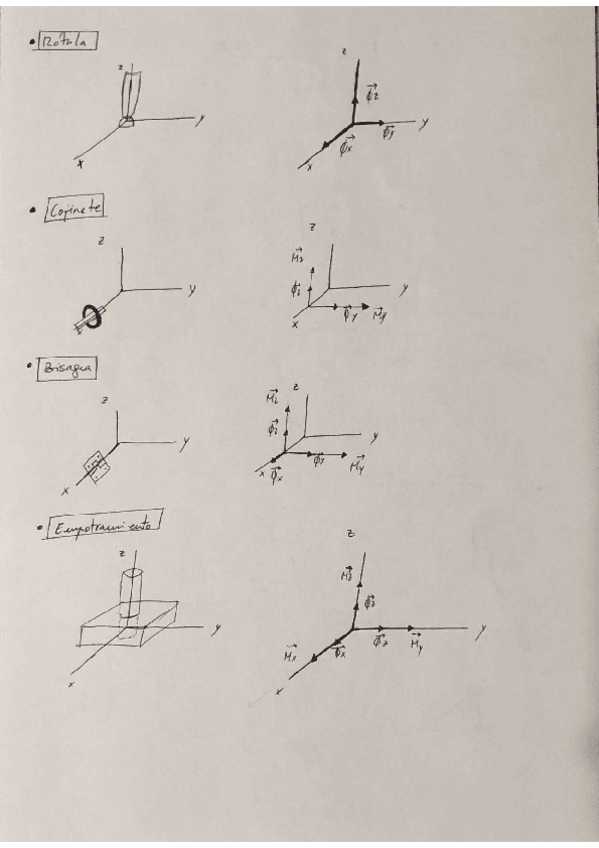 • Rotula
z
z
y
x
Φz
Φy
Φx
y
x
• Cojinete
z
y
z
Mz
Φz
x
y
Φy My
• Bisagra
z
y
x
z
Mz
Φz
y
x Φx
Φy
My
• Empotramiento
z
y
x
z
Mz
Φz
y
Mx
Φx
My
x